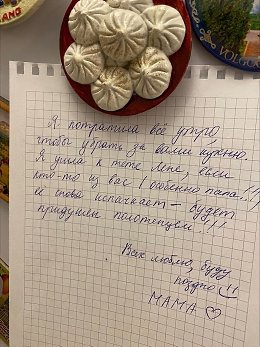 ANG
VOLGOG
Я потратила всё утро,
чтобы убрать за вами кухню.
Я ушла к тёте Лне, если
кто-то из вас (особенно папа..!!!
её снова испачкает – будет
придушен полотенцем.!!!
Всех люблю, буду
поздно !!
МАМА ♡